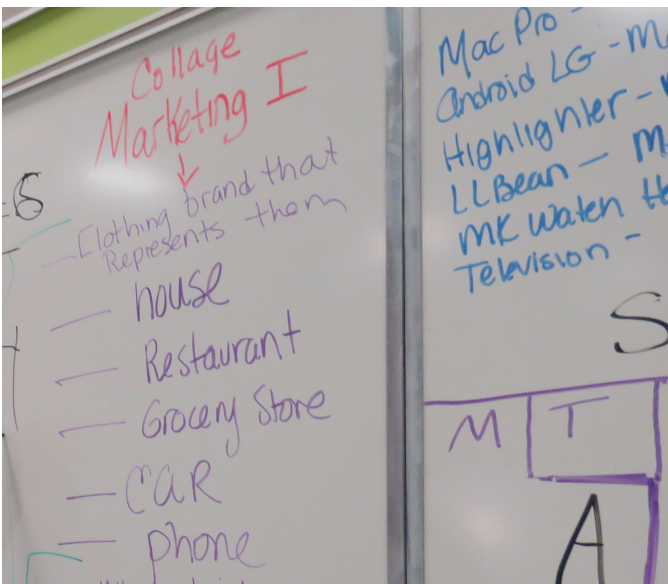 Collage
Marketing I
Clothing brand that
Represents them
house
Restaurant
Grocery Store
CAR
phone
Mac Pro -
Android LG - M
Highlighter -
LLBean - M
MK Watch
Television -
S
M T
A